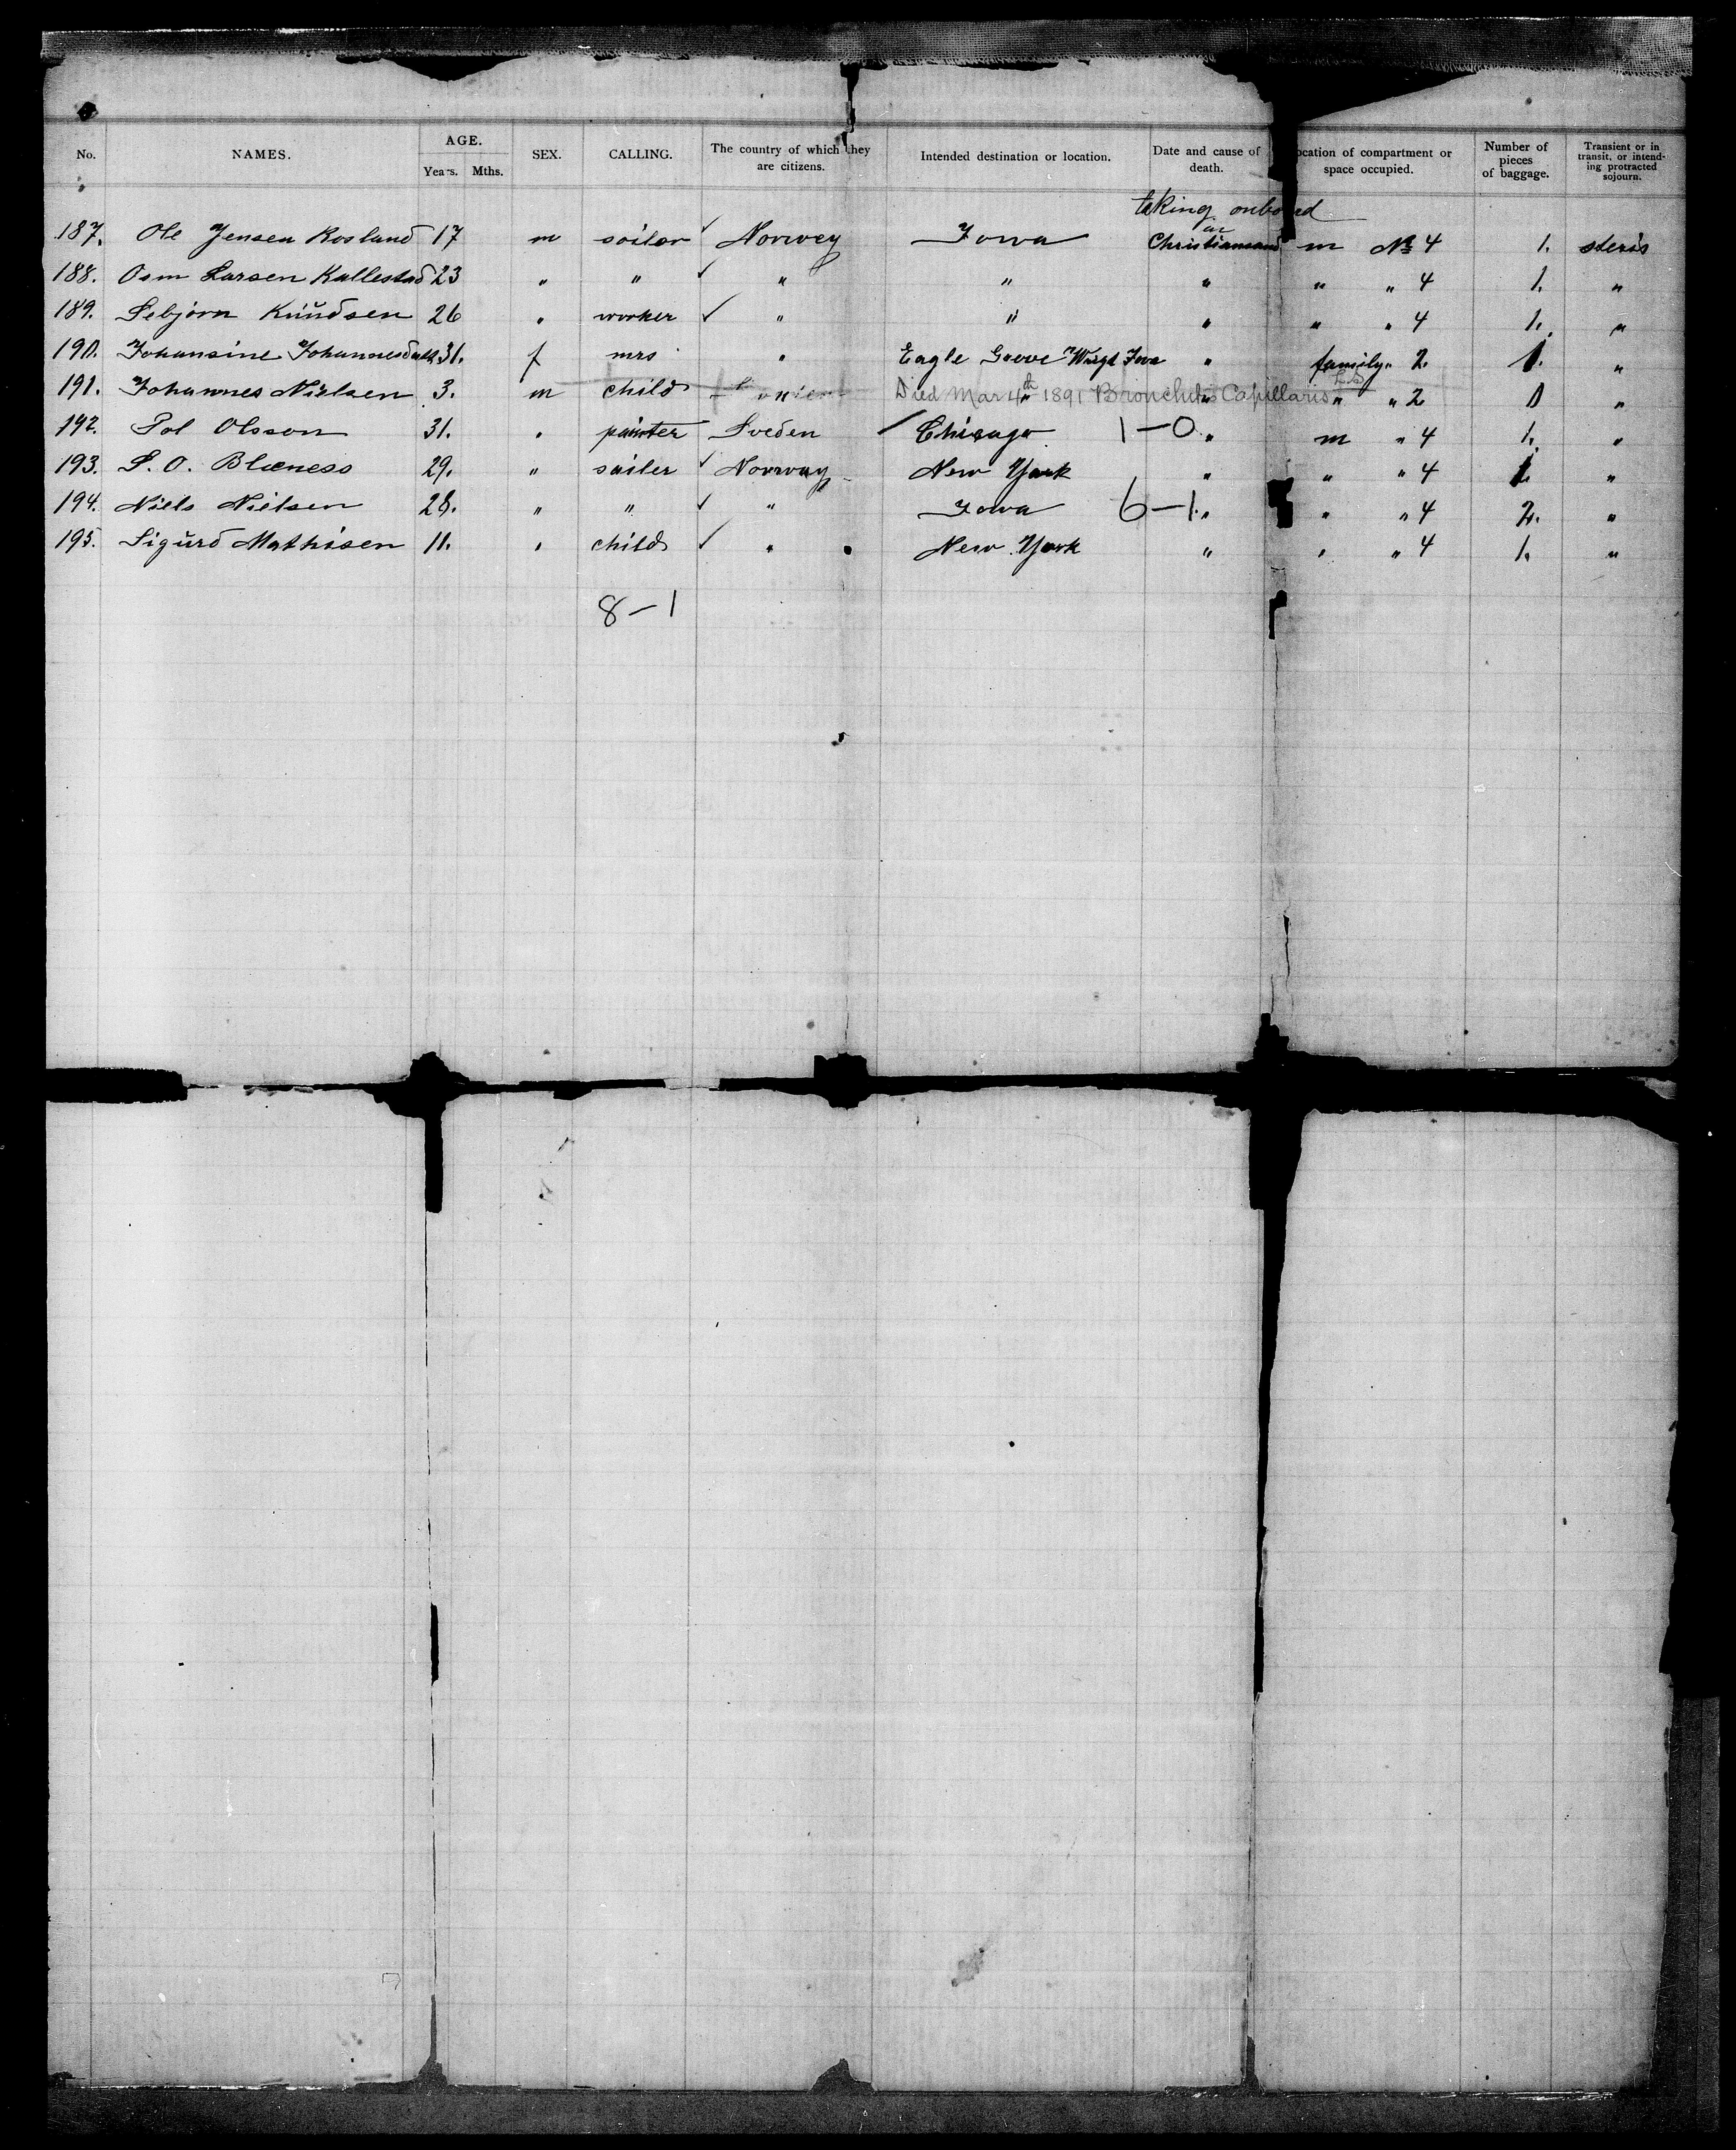 No. NAMES. AGE. Years. Mths. SEX. CALLING. The country of which they are citizens. Intended destination or location. Date and cause of death. ocation of compartment or space occupied. Number of pieces of baggage. Transient or in transit, or intending protracted sojourn.
taking onboard
187. Ole Jensen Rosland 17 m sailor ✓ Norwey Iowa Christiansand m No 4 1.
188. Osm Larsen Kallestad 23 " " ✓ " " " " " 4 1. "
189. Sebjörn Knudsen 26 " worker ✓ " " " " " 4 1. "
190. Johansine Johannesdatt 31. f mrs " Eagle Grove Wrigt Iowa " family " 2. 1. "
191. Johannes Nielsen 3. m child " Died Mar 4th 1891 Bronchitis Capillaris " " 2 1 "
192. Pol Olsson 31. " painter Sveden Chicago 1-0 " m " 4 1. "
193. S. O. Blæness 29. " sailer ✓ Norway New York " " " 4 1. "
194. Niels Nielsen 28. " " ✓ " Iowa 6-1 " " " 4 2. "
195. Sigurd Mathisen 11. " child ✓ " New York " " " 4 1. "
8-1